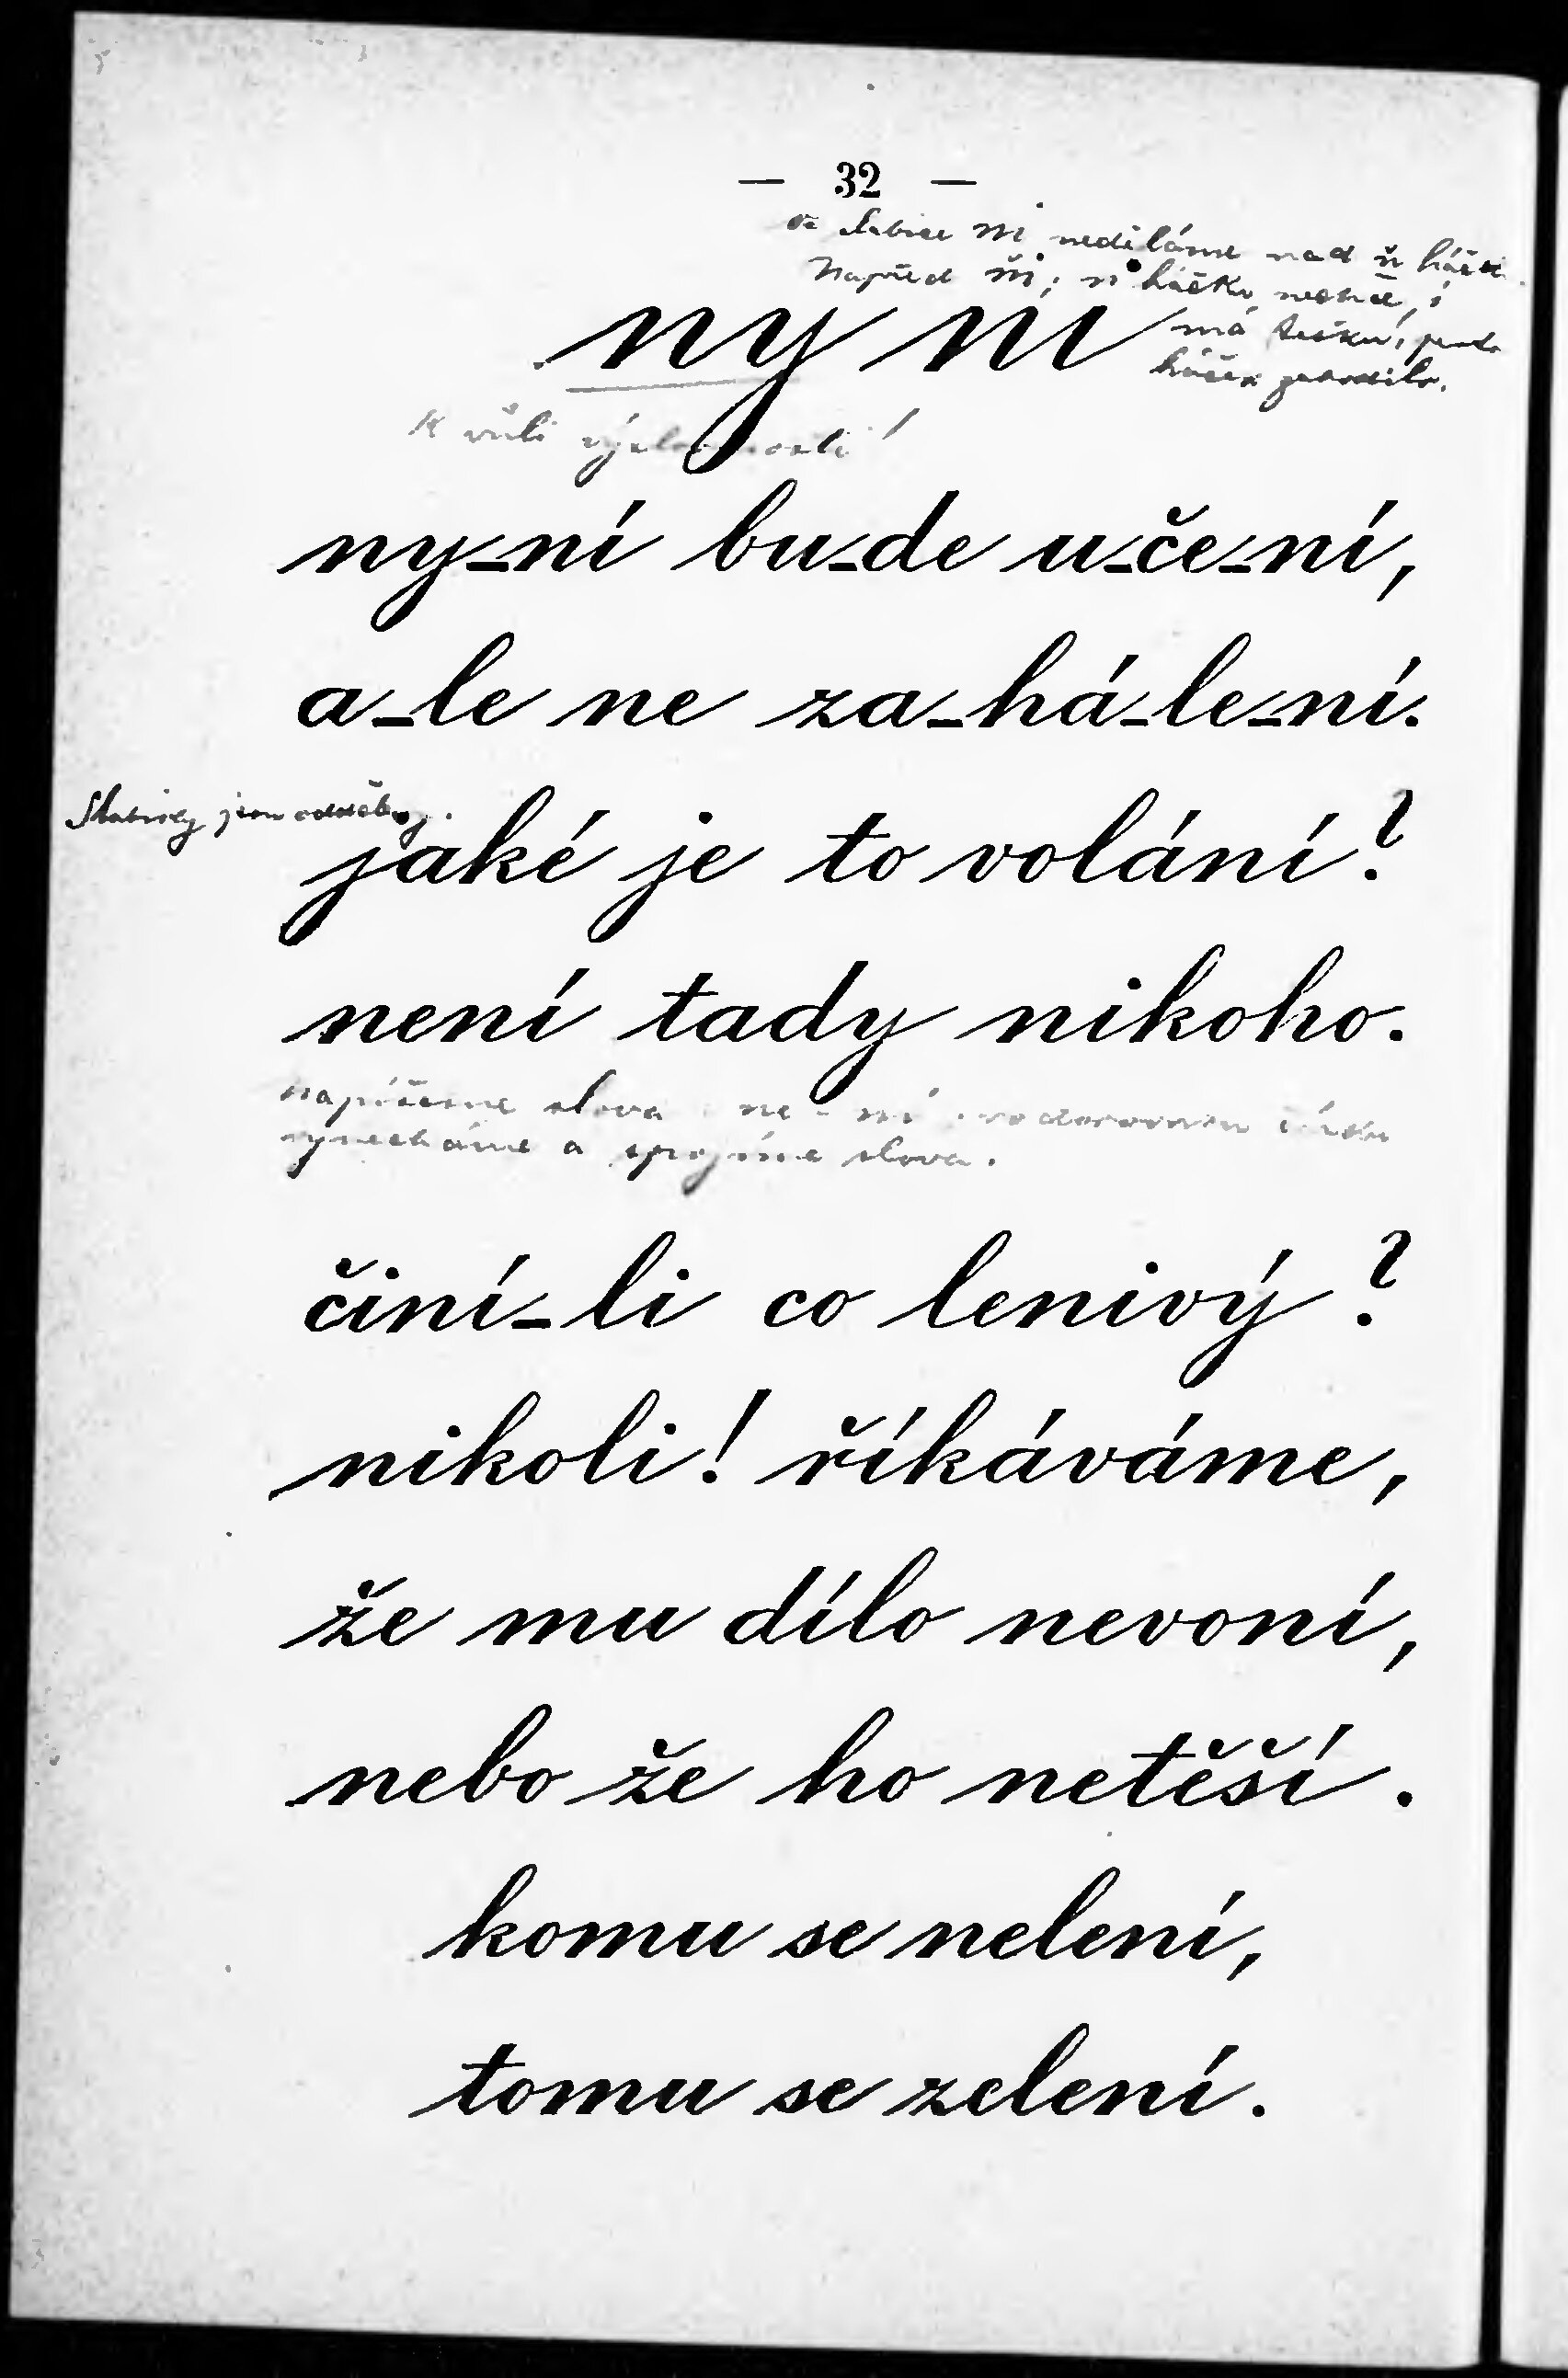 — 32 —
slabice ni neděláme nad n háček.
Napřed ňi; n háčku nechce, i
ny ni
má tečku,
háček
K vůli výslovnosti!
ny-ní bu-de u-če-ní,
a-le ne za-há-le-ní.
Slabiky jsou odděleny.
jaké je to volání?
není tady nikoho.
Napíšeme slova ne - ní vodorovnou čárku
vynecháme a spojíme slova.
činí-li co lenivý?
nikoli! říkáváme,
že mu dílo nevoní,
nebo že ho netěší.
komu se nelení,
tomu se zelení.